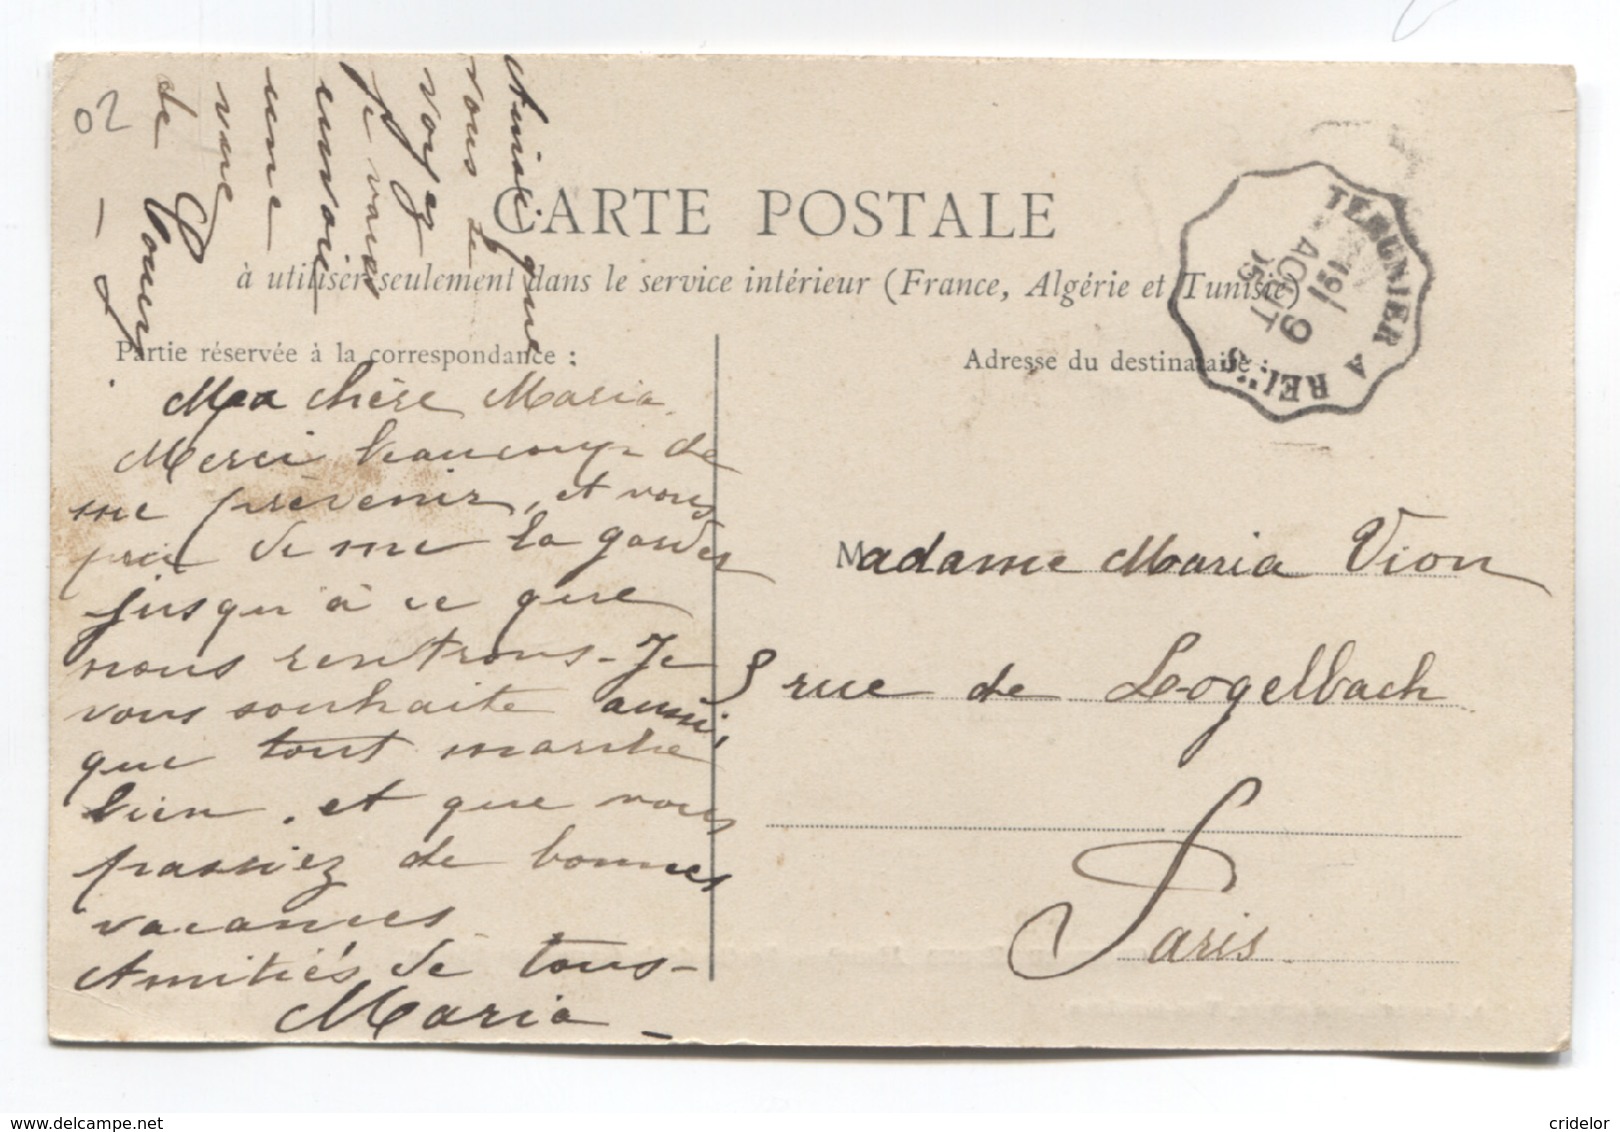 02
Ainsi que
vous le
voyez
je vous
envoie
une
vue
de Coucy
CARTE POSTALE
à utiliser seulement dans le service intérieur (France, Algérie et Tunisie)
Partie réservée à la correspondance :
Adresse du destinataire :
TERGNIER A REIMS
19
9
AOUT
05
Ma chère Maria
Merci beaucoup de
me prévenir, et vous
prie de me la garder
jusqu'à ce que
nous rentrons - Je
vous souhaite aussi,
que tout marche
bien. et que vous
passiez de bonnes
vacances
Amitiés de tous -
Maria -
Madame Maria Vion
rue de Logelbach
Paris.
cridelor
https://www.delcampe.net